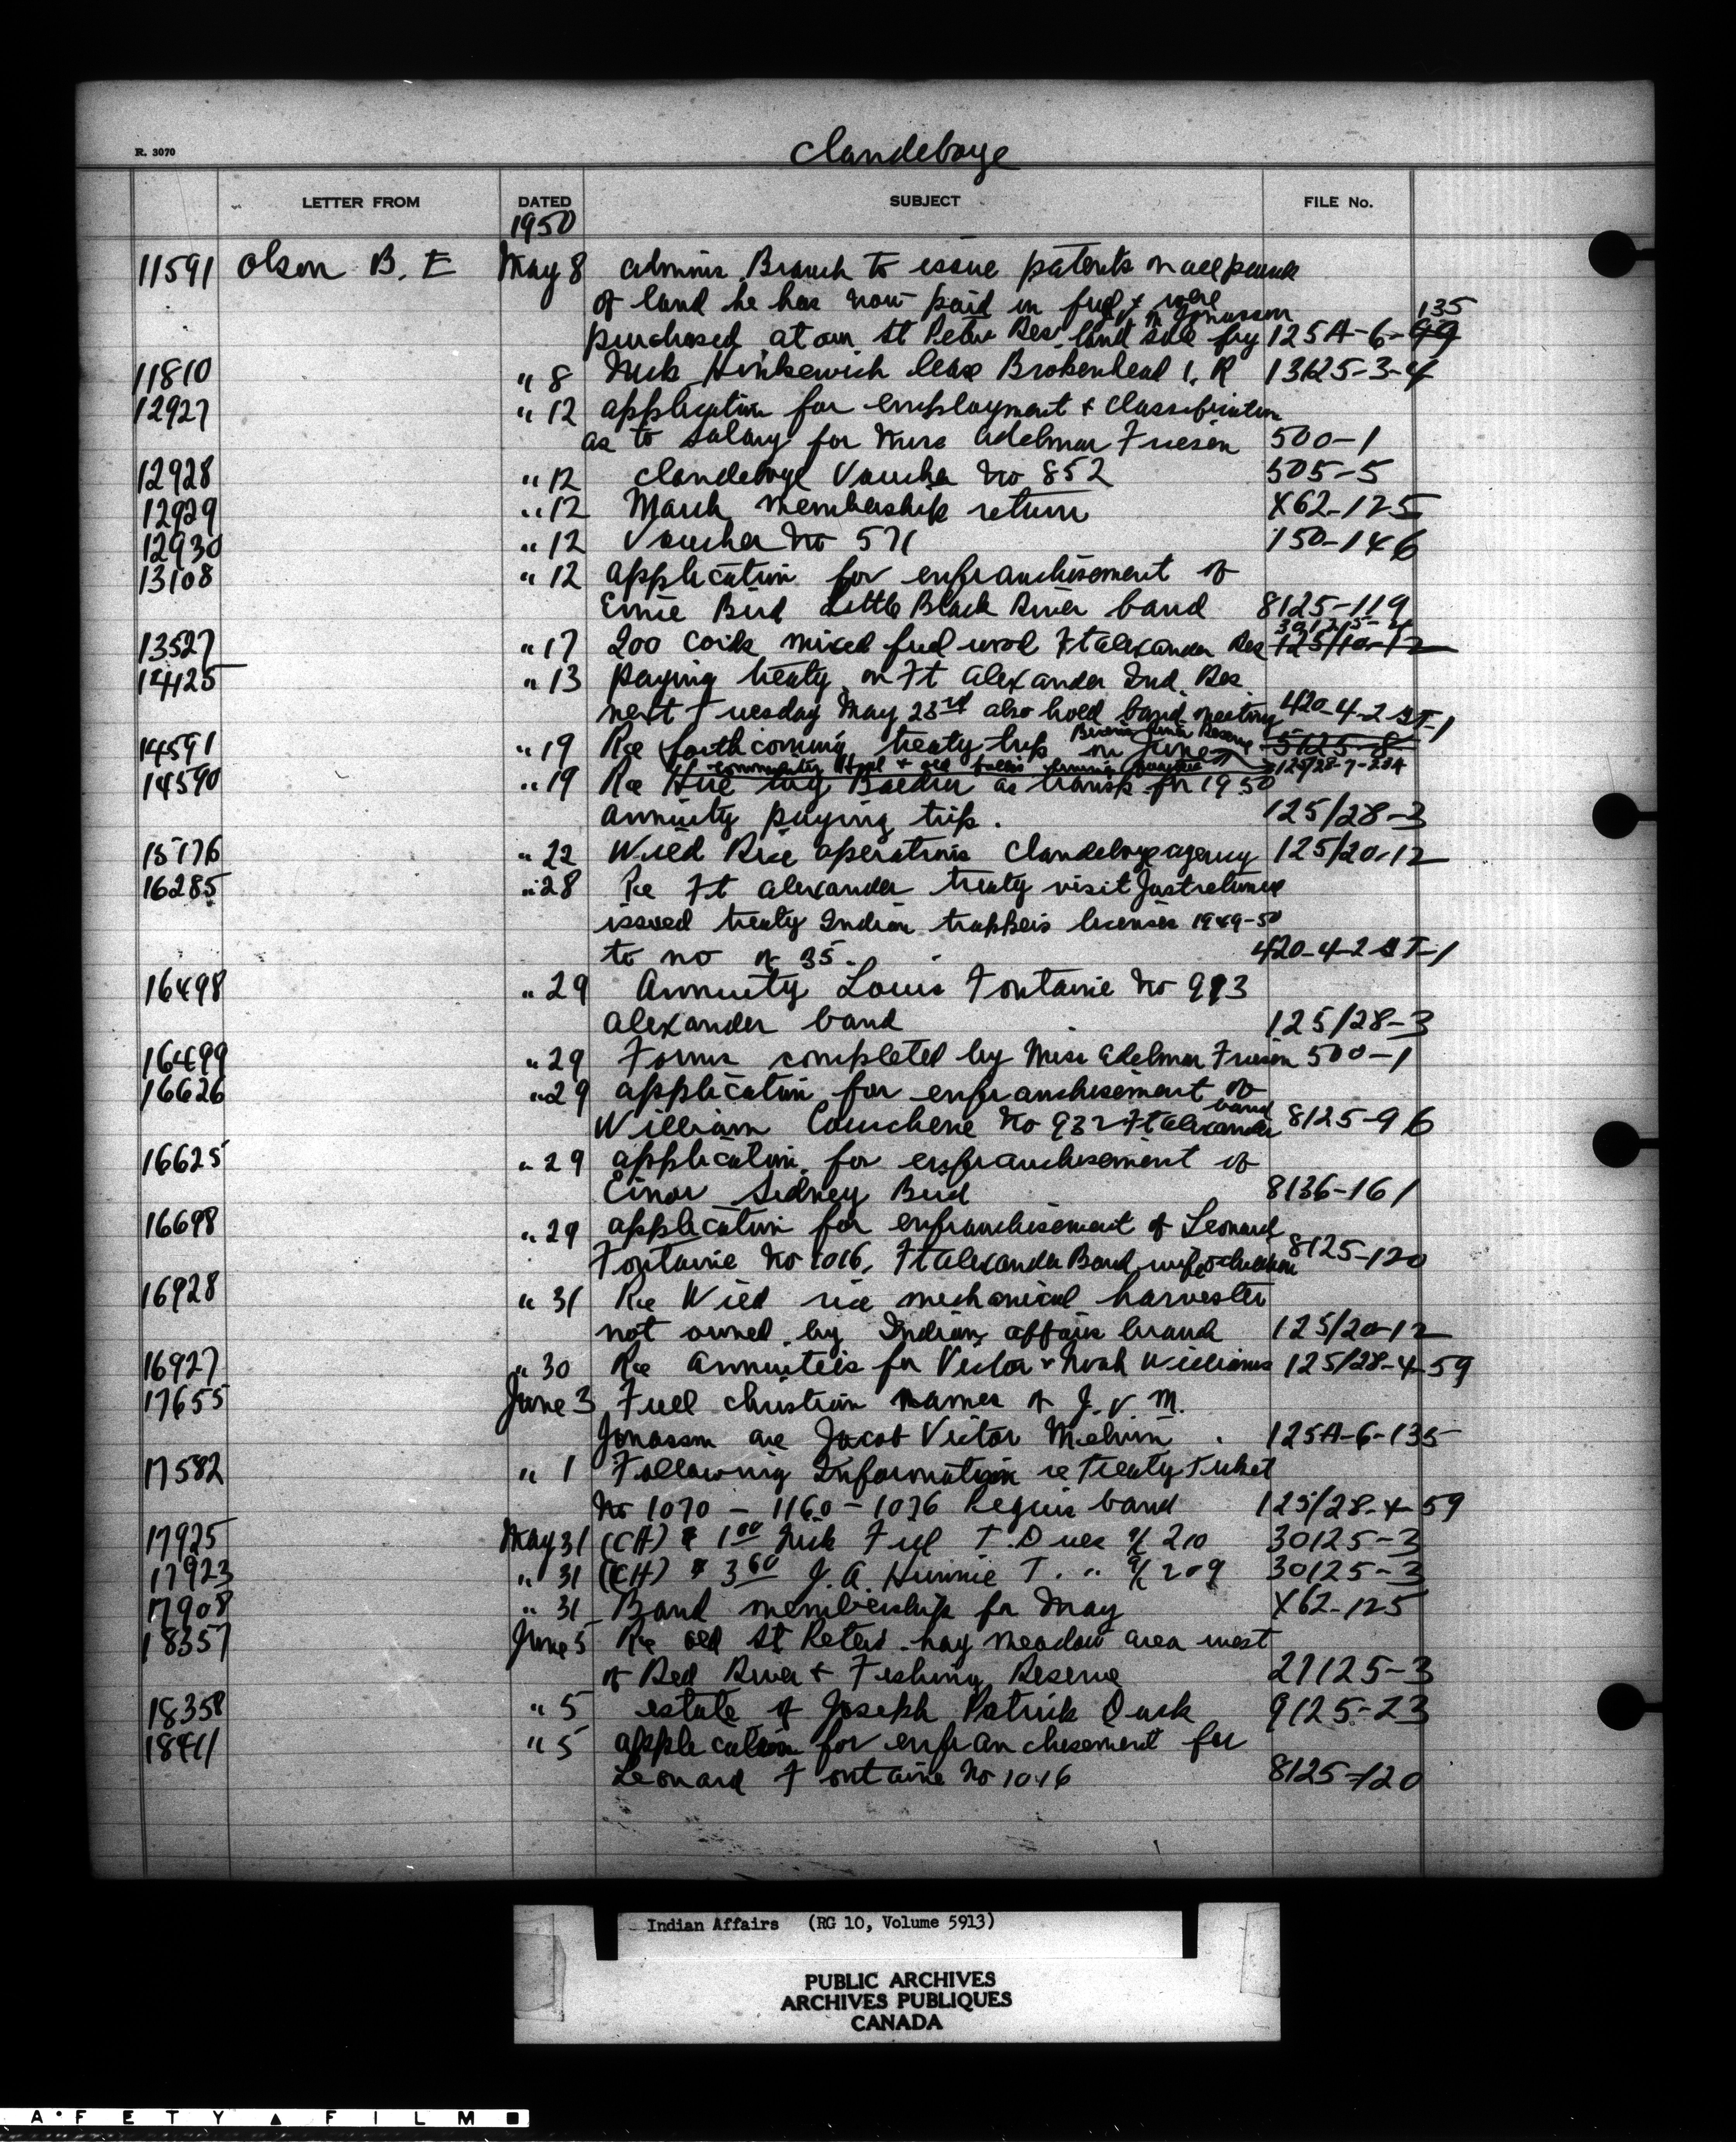 R. 3070
Clandeboye
LETTER FROM DATED SUBJECT FILE No.
1950
11591 Olson B. E May 8 adminis. Branch to issue patents on all
of land he has now paid in full & were
J. V. M Jonasson 135
purchased at our St Peter Res. land sale by 125A-6-99
11810 " 8 Nick lease Brokenhead I. R 13625-3-4
12927 " 12 application for employment & classification
as to salary for Nurse Adelmar Friesen 500-1
12928 " 12 Clandeboye Voucher No 852 505-5
12929 " 12 March membership return X62-125
12930 " 12 Voucher No 571 150-146
13108 " 12 application for enfranchisement of
Ernie Bird Little Black River band 8125-119
30125-4
13527 " 17 200 cords mixed fuel wood Ft Alexander Res 125/10-12
14125 " 13 paying treaty on Ft Alexander Ind. Res
next Tuesday May 23rd also hold band meeting 420-4-2 GT-1
14591 " 19 Re forthcoming treaty trip in June 5125-8
community Hall & old
14590 " 19 Re Hire Boedru as transp. for 1950
annuity paying trip. 125/28-3
15176 " 22 Wild Rice operations Clandeboye agency 125/20-12
16285 " 28 Re Ft Alexander treaty visit Just returned
issued treaty Indian trappers licenses 1949-50
to no of 35. 420-4-2 GT-1
16498 " 29 Annuity Louis Fontaine No 993
Alexander band 125/28-3
16499 " 29 Forms completed by Miss Adelmar Friesen 500-1
16626 " 29 application for enfranchisement of
band
William Courchene No 932 Ft Alexander 8125-96
16625 " 29 application for enfranchisement of
Einar Sidney Bird 8136-161
16698 " 29 application for enfranchisement of Leonard
Fontaine No 1016, Ft Alexander Band, wife & children 8125-120
16928 " 31 Re Wild rice mechanical harvester
not owned by Indian affairs branch 125/20-12
16927 " 30 Re Annuities for Victor & Noah Williams 125/28-4-59
17655 June 3 Full christian names of J. V. M.
Jonasson are Jacob Victor Melvin 125A-6-135
17582 " 1 Following Information re Treaty Ticket
No 1070 - 1160 - 1036 Peguis band 125/28-4-59
17925 May 31 (CH) $ 1.00 Nick T. Dues 210 30125-3
17923 " 31 (CH) $ 3.60 J. A. T. " 209 30125-3
17908 " 31 Band membership for May X62-125
18357 June 5 Re old St Peters hay meadow area west
of Red River & Fishing Reserve 27125-3
18358 " 5 estate of Joseph Patrick 9125-23
18411 " 5 application for enfranchisement for
Leonard Fontaine No 1016 8125-120
Indian Affairs (RG 10, Volume 5913)
PUBLIC ARCHIVES
ARCHIVES PUBLIQUES
CANADA
A F E T Y FILM